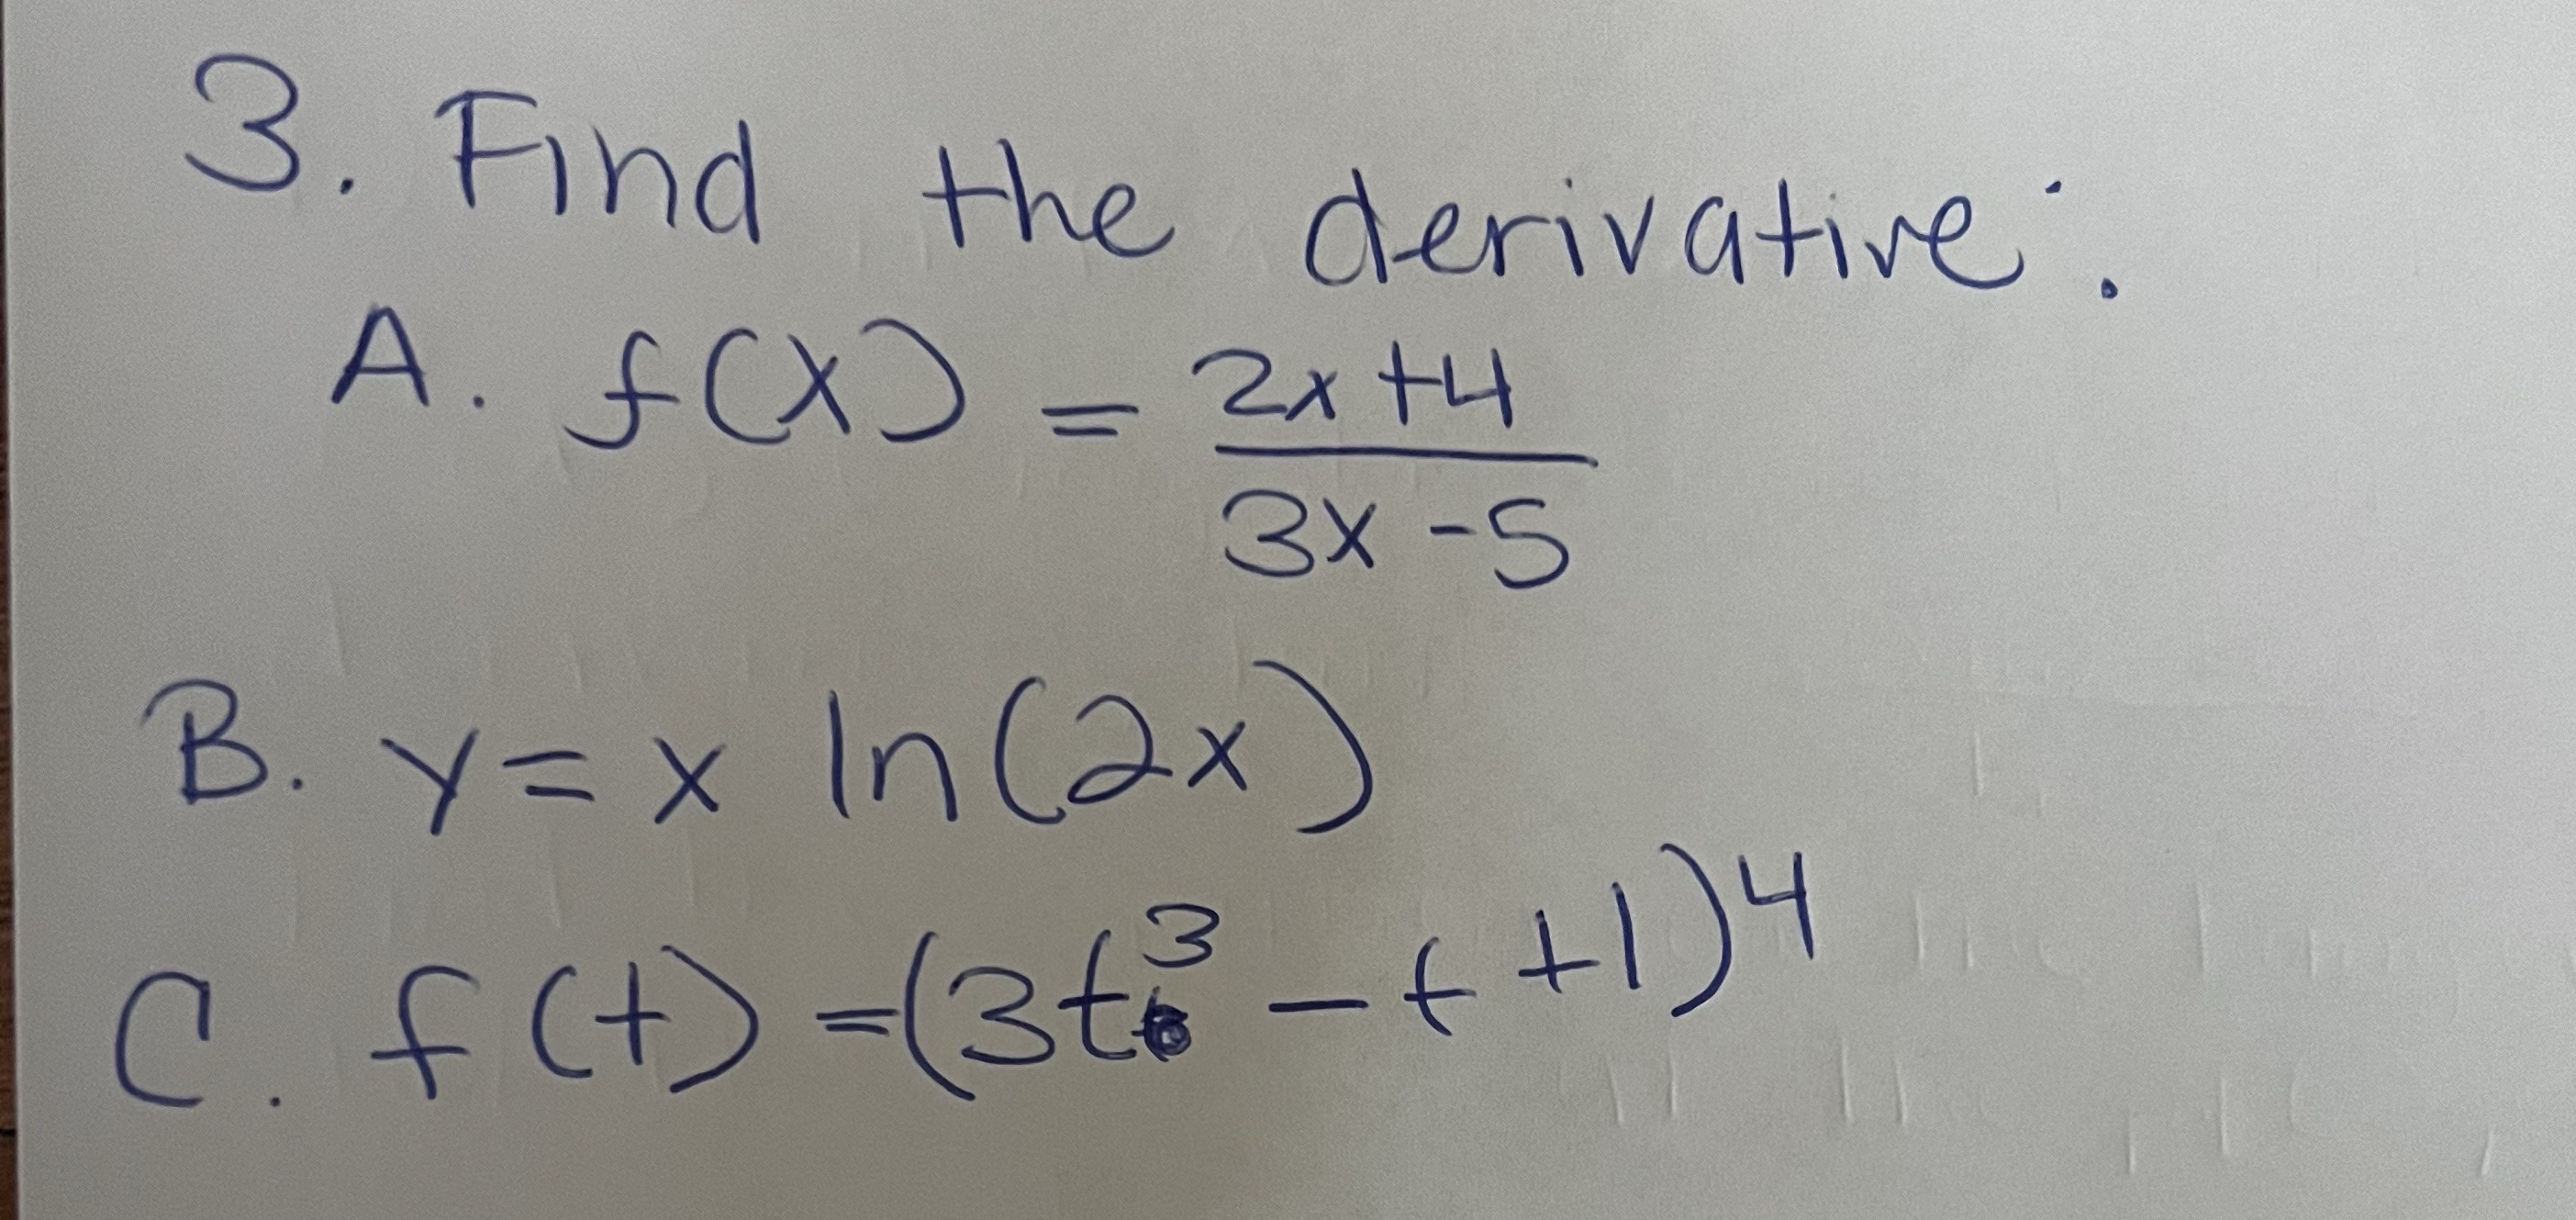 3. Find the derivative:
A. f(x) = 2x+4
3x-5
B. y = x ln(2x)
C. f(t) = (3t³ - t + 1)⁴